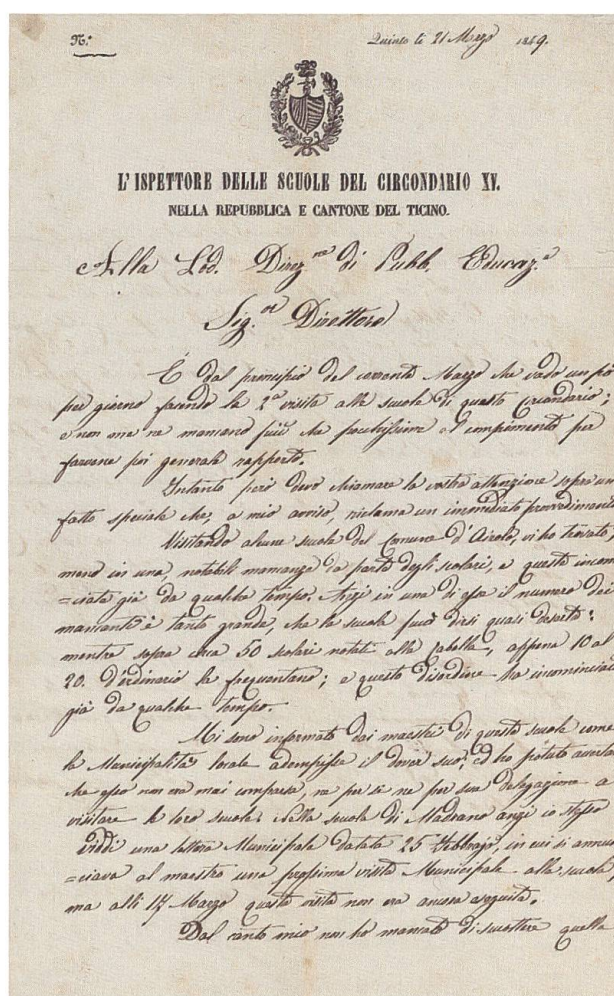 N.º
Quinto li 21 Marzo 1849.
L'ISPETTORE DELLE SCUOLE DEL CIRCONDARIO XV.
NELLA REPUBBLICA E CANTONE DEL TICINO.
Alla Lod. Direz.ne di Pubb. Educaz.e
Sig.or Direttore
È dal principio del corrente Marzo che vado un po'
per giorno facendo la 2a visita alle scuole di questo circondario;
e non me ne mancano più che pochissime al compimento per
farvene poi generale rapporto.
Intanto però devo chiamare la vostra attenzione sopra un
fatto speciale che, a mio avviso, reclama un immediato provvedimento
Visitando alcune scuole del Comune d'Airolo, vi ho trovato,
meno in una, notabili mancanze da parte degli scolari, e queste incom
=ciate già da qualche tempo. Anzi in una di esse il numero dei
mancanti è tanto grande, che la scuola può dirsi quasi deserta:
mentre sopra circa 50 scolari notati alla tabella, appena 10 al
20. d'ordinario la frequentano; e questo disordine ha incominciato
già da qualche tempo.
Mi sono informato dai maestri di queste scuole come
la Municipalità locale adempisse il dover suo; ed ho potuto
che essa non era mai comparsa, ne per se ne per sua delegazione a
visitare le loro scuole. Nella scuola di Madrano anzi io stesso
viddi una lettera Municipale datata 25 Febbrajo, in cui si annun
=ciava al maestro una prossima visita Municipale alla scuola,
ma alli 14 Marzo questa visita non era ancora eseguita.
Dal canto mio non ho mancato di scuottere quella